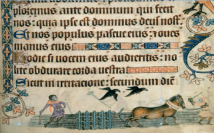 ploremus ante dominum qui fecit
nos: quia ipse est dominus deus nost
Et nos populus pascue eius: ⁊ oues
manus eius
hodie si uocem eius audieritis: no
lite obdurare corda uestra
Sicut in irritacione: secundum die